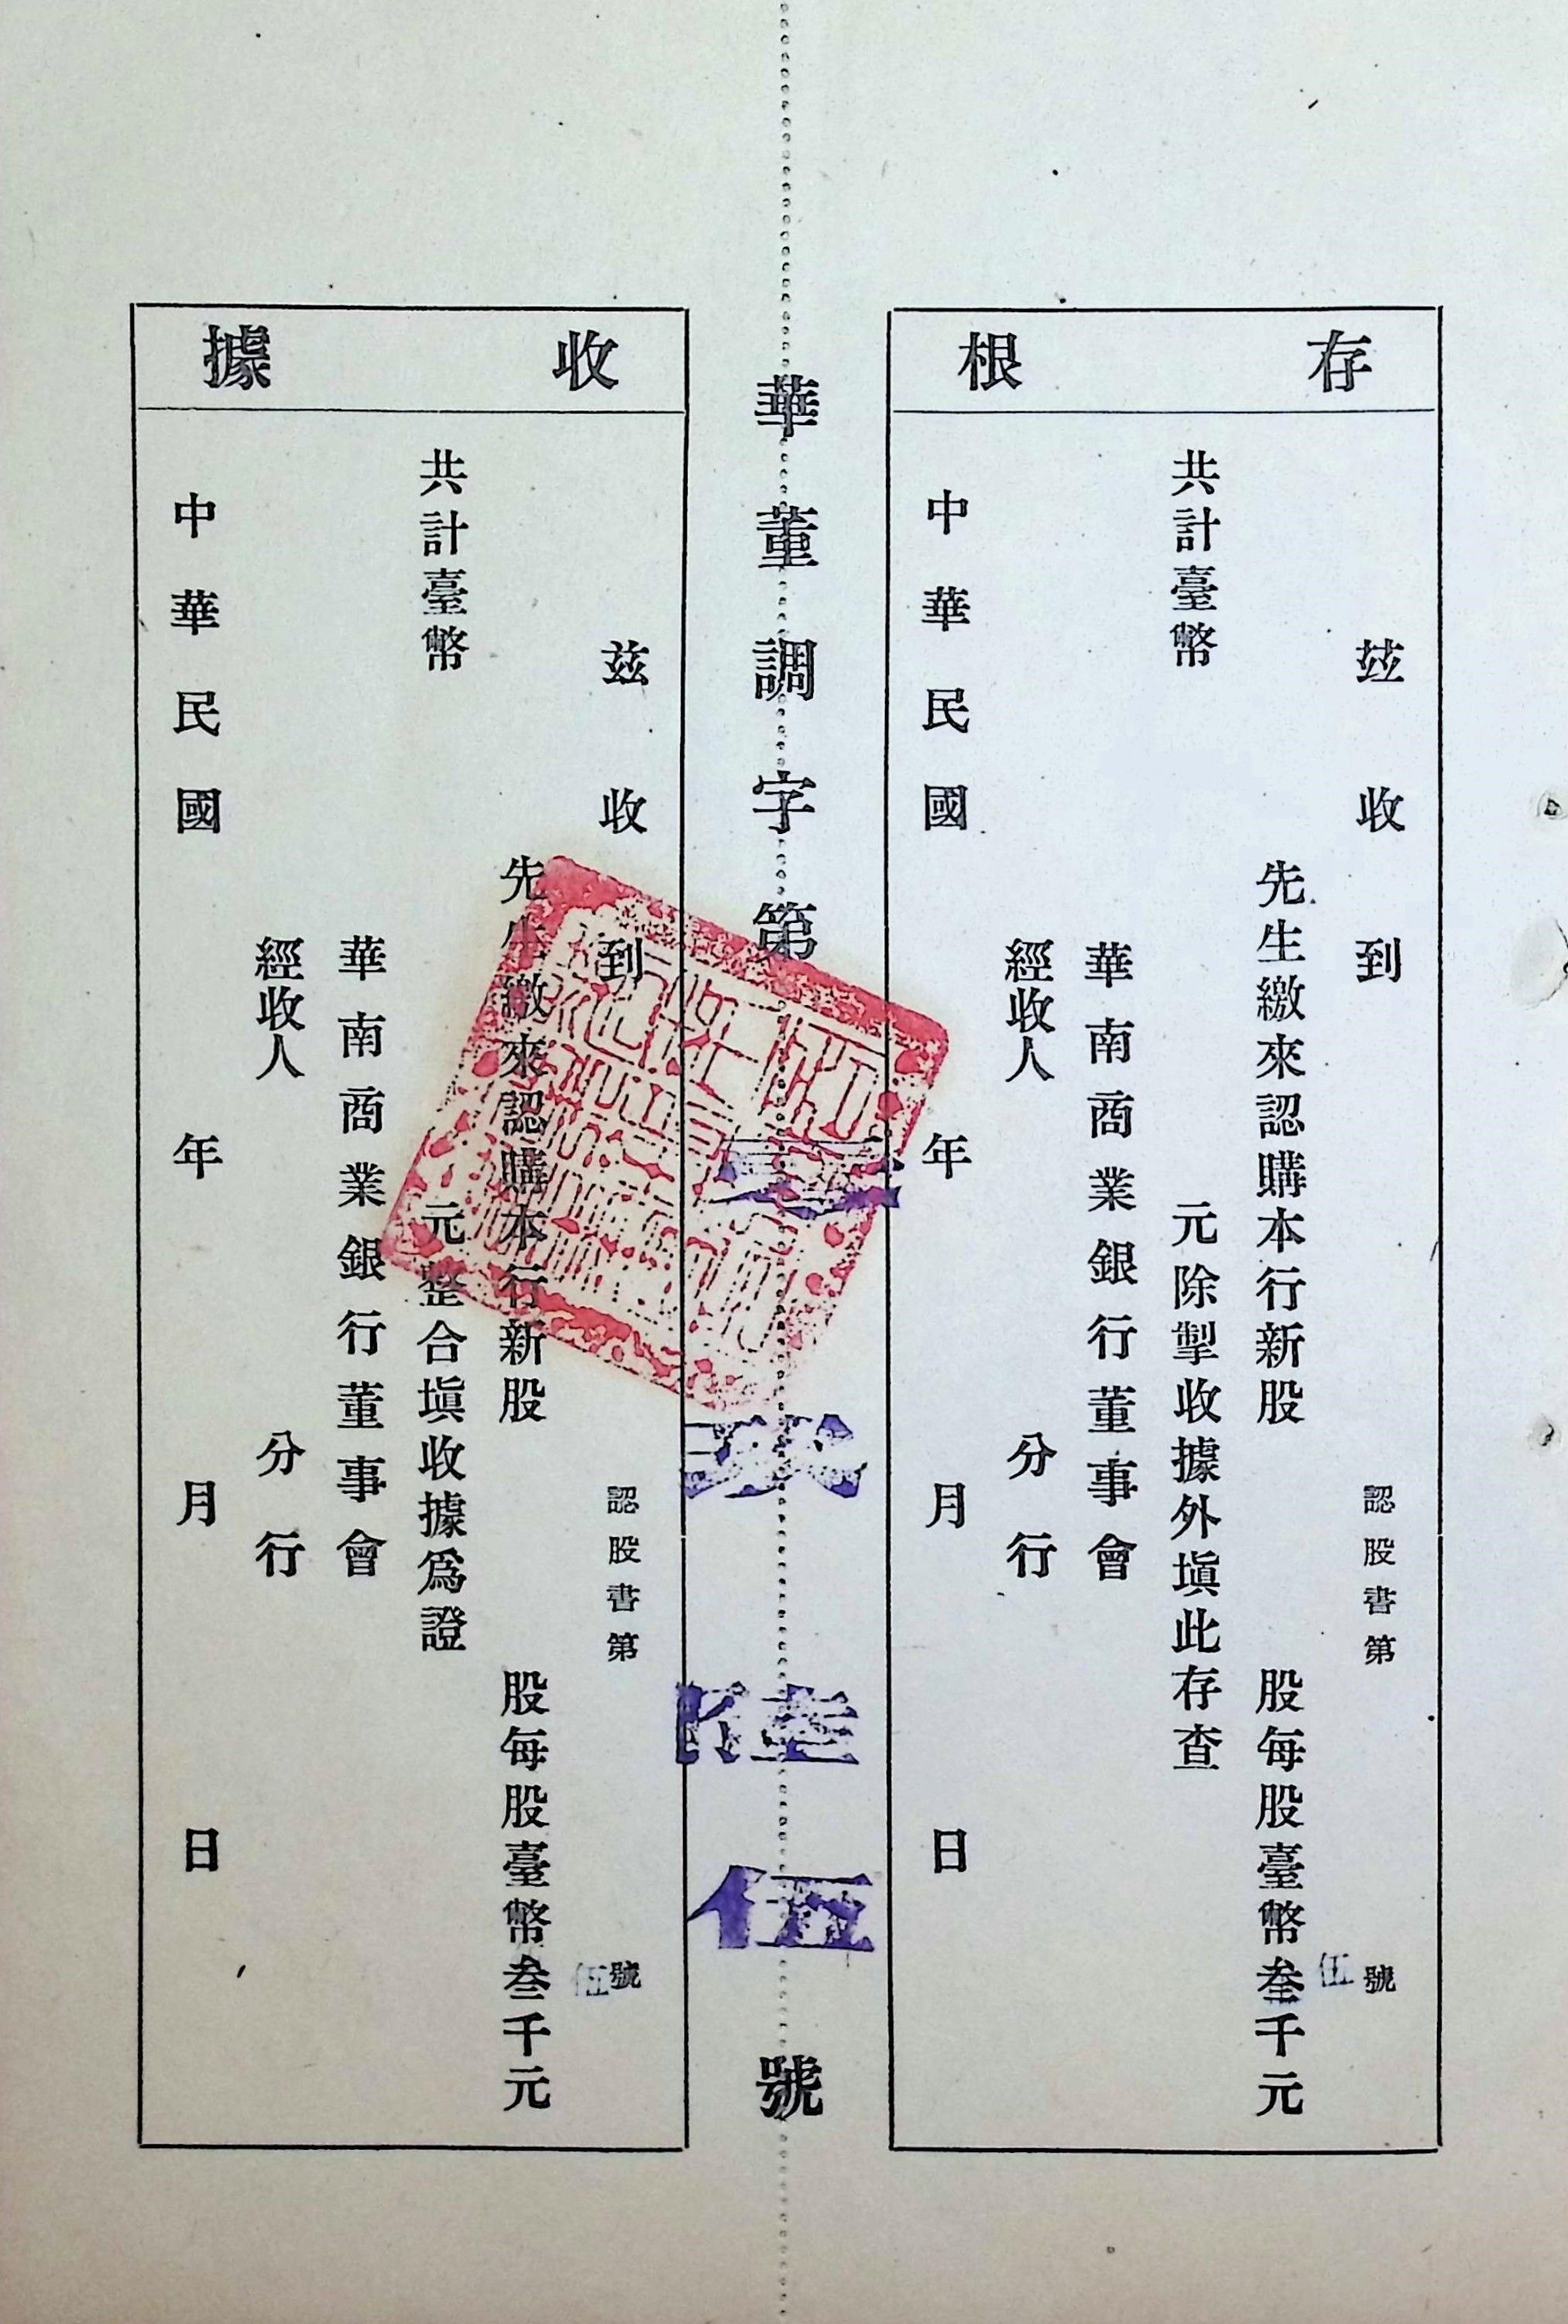 存根
茲收到 認股書第 伍號
先生繳來認購本行新股 股每股臺幣叁千元
共計臺幣 元除掣收據外塡此存查
華南商業銀行董事會
經收人 分行
中華民國 年 月 日
華董調字第 玖陸伍號
收據
茲收到 認股書第 伍號
先生繳來認購本行新股 股每股臺幣叁千元
共計臺幣 元整合塡收據爲證
華南商業銀行董事會
經收人 分行
中華民國 年 月 日